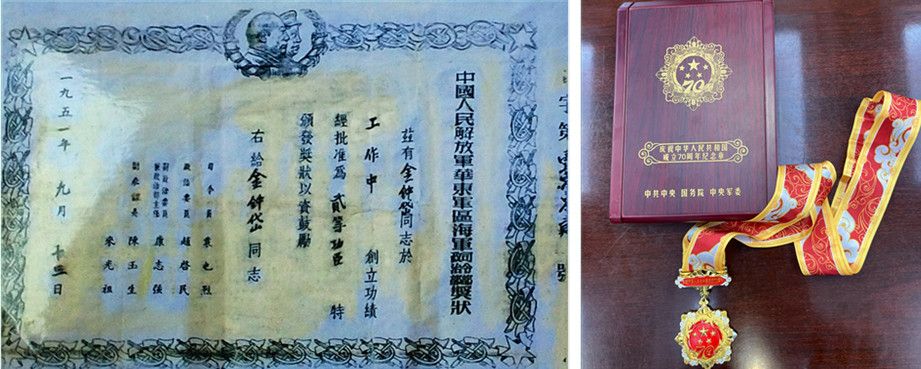 字第
中國人民解放軍華東軍區海軍獎狀
茲有金钟岱同志於
工作中 創立功績
經批准為 貳等功臣 特
頒發獎狀以資鼓勵
右給金钟岱同志
司令員 袁也烈
政治委員 趙啓民
副政治委員
兼政治部主任 康志强
副參謀長 陳玉生
宋光祖
一九五一年 九月 十三日
70
庆祝中华人民共和国
成立70周年纪念章
中共中央 国务院 中央军委
70